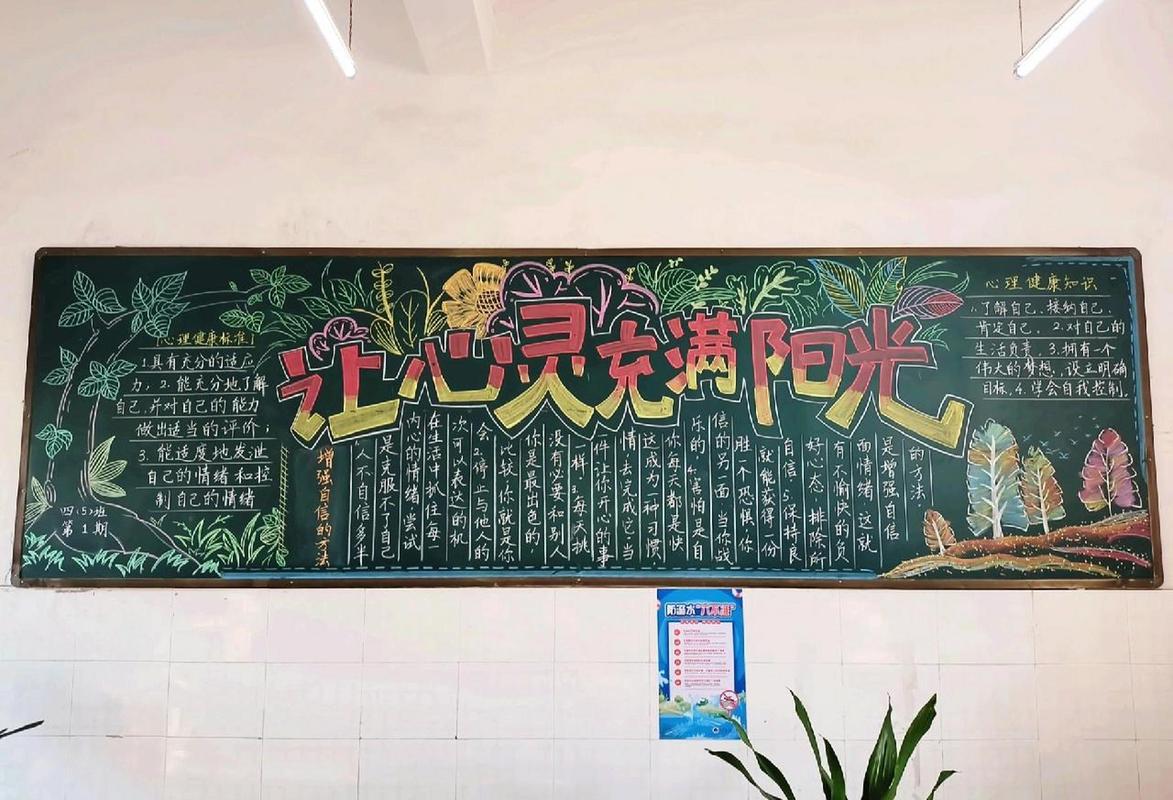 让心灵充满阳光
心理健康标准
1.具有充分的适应
力,2.能充分地了解
自己,并对自己的能力
做出适当的评价;
3.能适度地发泄
自己的情绪和控
制自己的情绪
四(5)班
第1期
增强自信的方法
人不自信多半
是克服不了自己
内心的情绪,尝试
在生活中抓住每一
次可以表达的机
会.2.停止与他人的
比较,你就是你
你是最出色的
没有必要和别人
一样.3.每天挑
件让你开心的事
情,去完成它,当
这成为一种习惯,
你每天都是快
乐的.4.害怕是自
信的另一面,当你战
胜一个恐惧,你
就能获得一份
自信.5.保持良
好心态,排除所
有不愉快的负
面情绪,这就
是增强自信
的方法.
心理健康知识
1.了解自己、接纳自己、
肯定自己、2.对自己的
生活负责,3.拥有一个
伟大的梦想,设立明确
目标,4.学会自我控制.
防溺水"六不准"